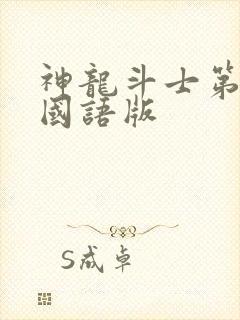 神龍斗士第
國語版
S戒卓